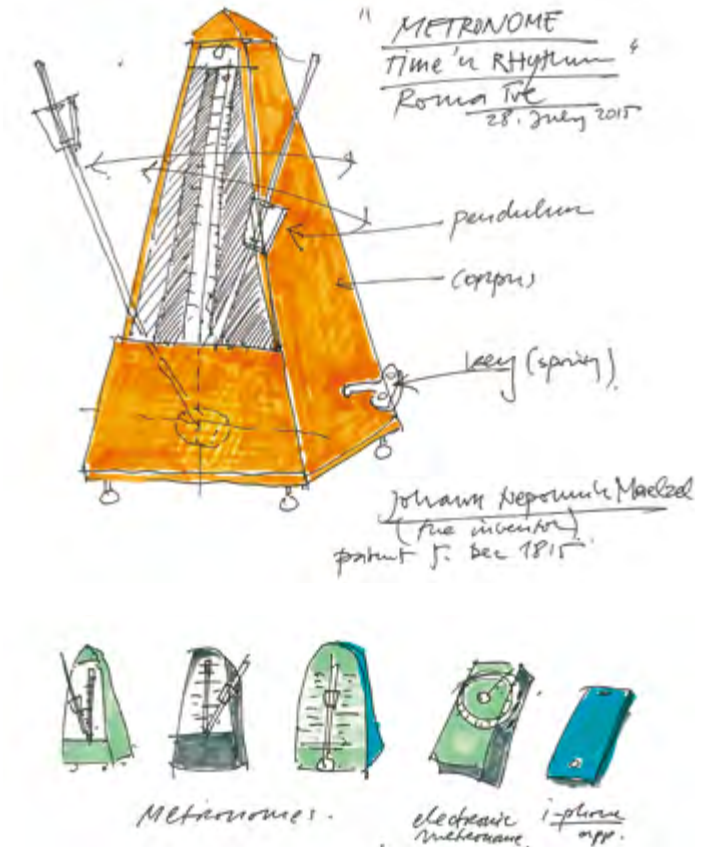 " METRONOME
Time'n RHythm "
Roma Tre
28. July 2015
pendulum
corpus
key (spring)
Johann Nepomuk Maelzel
(the inventor)
patent 5. Dec 1815
Metronomes.
electronic metronome.
i-phone app.